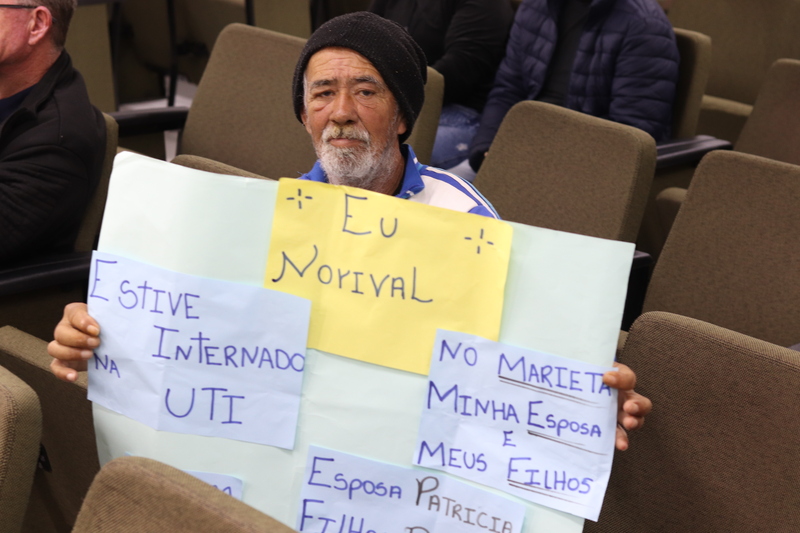 EU
NORIVAL
ESTIVE
INTERNADO
NA
UTI
NO MARIETA
MINHA ESPOSA
E
MEUS FILHOS
ESPOSA PATRICIA